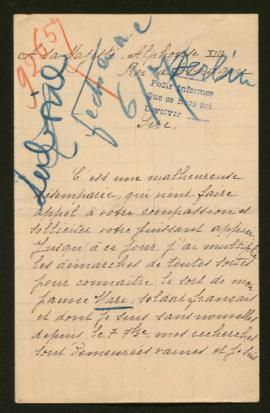 A Sa Majesté Alphonse XIII
Roi
Pedir informes
que se
Devolver
Berlin
Sire,
C'est une malheureuse
désemparée, qui vient faire
appel à votre compassion et
solliciter votre puissant appui
Jusqu'à ce jour, j'ai multiplié
les démarches de toutes sortes
pour connaître le sort de mon
pauvre Mari, soldat français
et dont je suis sans nouvelles
depuis le 7 7bre, mes recherches
sont demeurées vaines et je suis